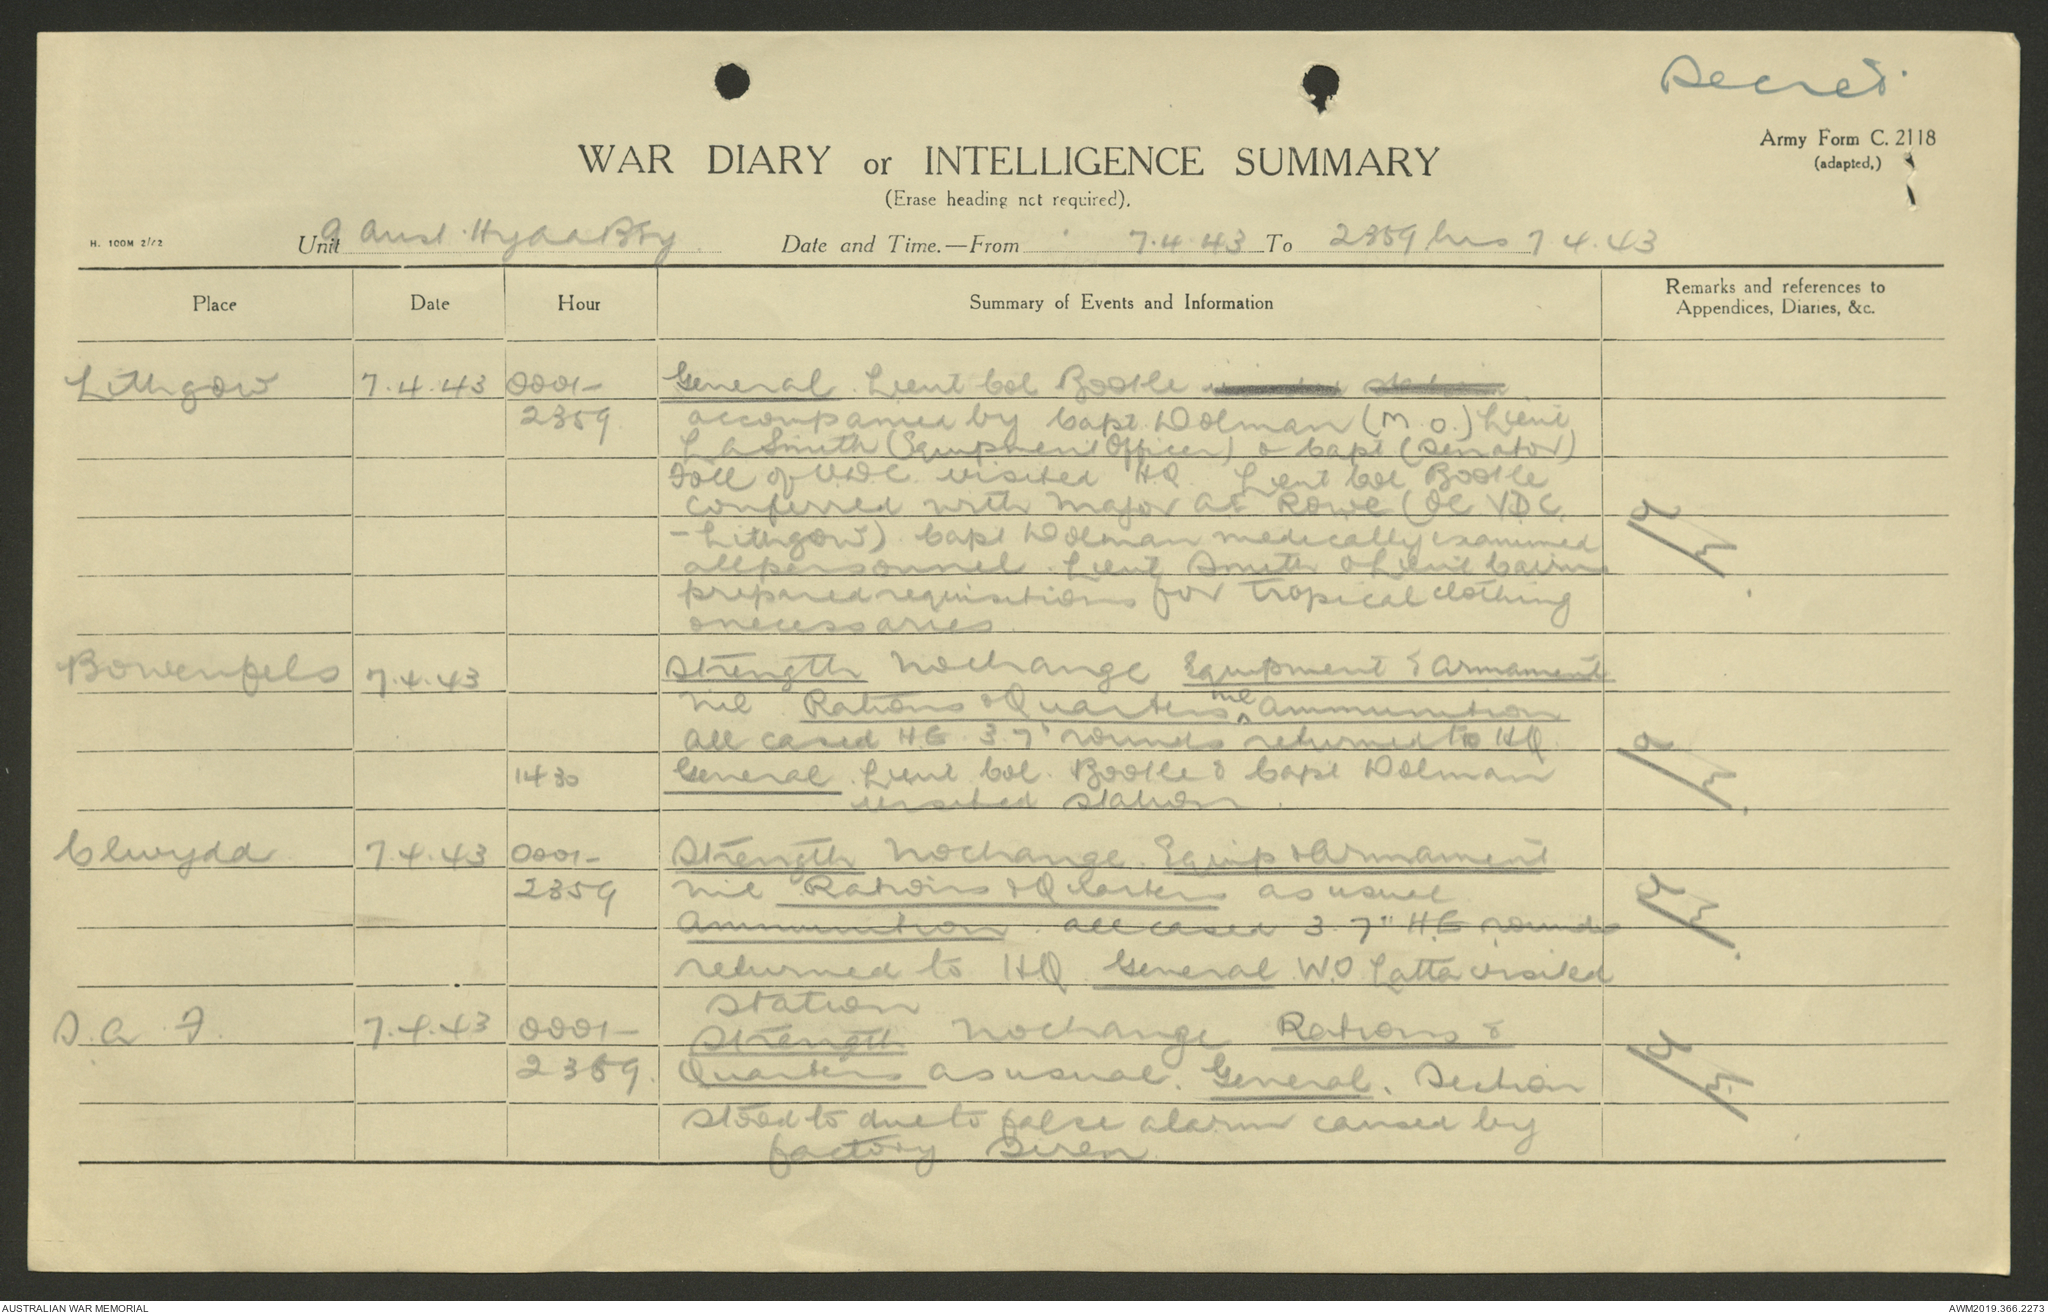 Secret.
Army Form C. 2118
(adapted.)
WAR DIARY or INTELLIGENCE SUMMARY
(Erase heading not required).
H. 100M 2/42
Unit 9 Aust. Hy AA Bty Date and Time.—From 7.4.43 To 2359 hrs 7.4.43
Place Date Hour Summary of Events and Information Remarks and references to
Appendices, Diaries, &c.
Lithgow 7.4.43 0001- General. Lieut Col Bootle
2359 accompanied by Capt. Dolman (M.O.) Lieut
L A Smith (Equipment Officer) & Capt (Senator)
Foll of V.D.C. visited HQ. Lieut Col Bootle
conferred with Major A E Rowe (OC V.D.C.
- Lithgow). Capt Dolman medically examined
all personnel. Lieut Smith & Lieut Cairns
prepared requisitions for tropical clothing
& necessaries.
Bowenfels 7.4.43 Strength No change Equipment & Armament
Nil Rations & Quarters nil Ammunition
All cased H.E. 3.7" rounds returned to HQ.
1430 General. Lieut Col. Bootle & Capt Dolman
visited station.
Clwydd 7.4.43 0001- Strength No change. Equip & Armament
2359 Nil Rations & Quarters as usual
Ammunition. All cased 3.7" H.E rounds
returned to HQ. General W.O Latta visited
station
S.A.F. 7.4.43 0001- Strength No change Rations &
2359. Quarters as usual. General. Section
stood to due to false alarm caused by
factory siren
AUSTRALIAN WAR MEMORIAL
AWM2019.366.2273